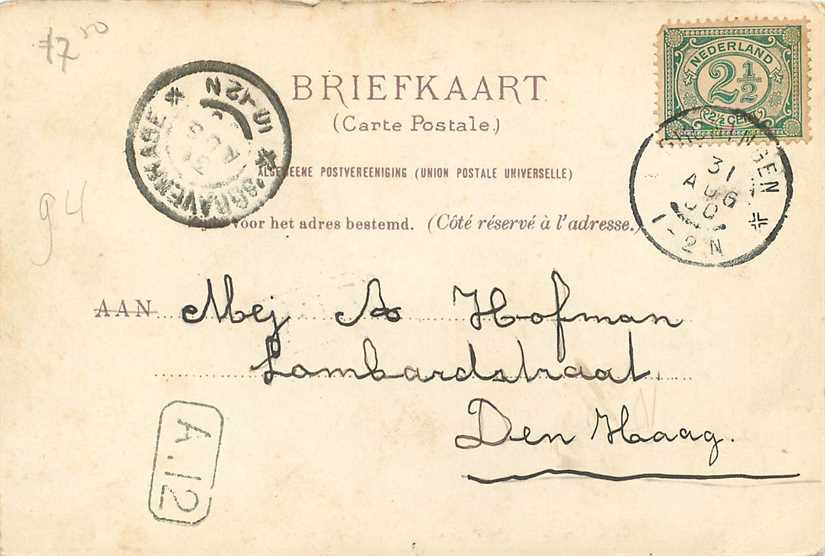 f7⁵⁰
BRIEFKAART
(Carte Postale.)
ALGEMEENE POSTVEREENIGING (UNION POSTALE UNIVERSELLE)
voor het adres bestemd. (Côté réservé à l'adresse.)
NEDERLAND
2½
(2½ CENT)
31
AUG
00
1-2N
'SGRAVENHAGE
31
AUG
10-12N
94
AAN Mej A Hofman
Lombardstraat
Den Haag.
A.12